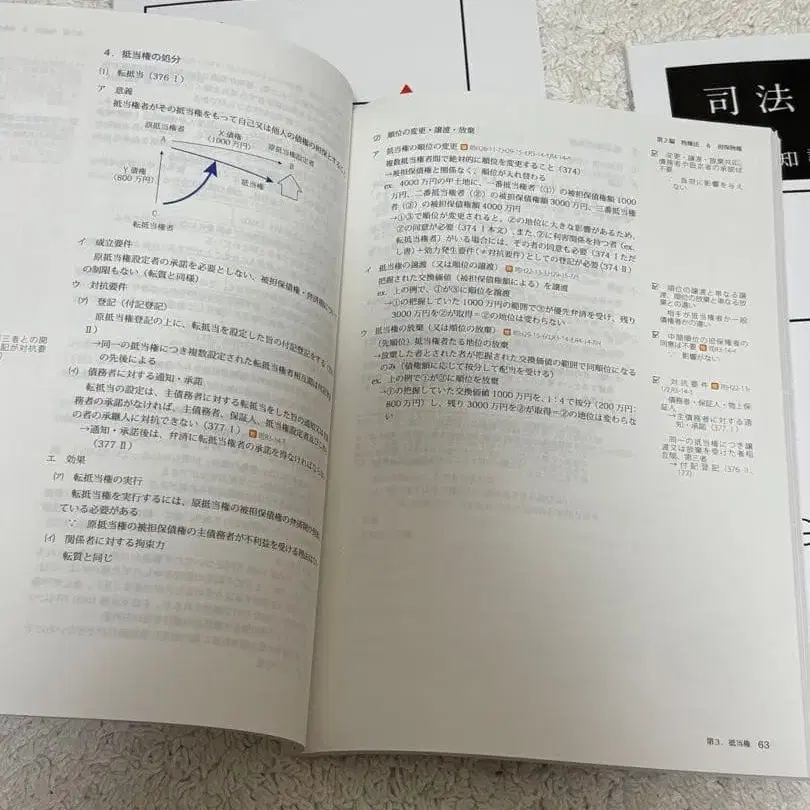 4. 抵当権の処分
(1) 転抵当(376 I)
ア 意義
抵当権者がその抵当権をもって自己又は他人の債権の担保とすること
原抵当権者
X債権
(1000万円)
原抵当権設定者
A
B
Y債権
(800万円)
抵当権
C
転抵当権者
イ 成立要件
原抵当権設定者の承諾を必要としない、被担保債権・弁済期につい
の制限もない(転質と同様)
ウ 対抗要件
(ア) 登記(付記登記)
原抵当権登記の上に、転抵当を設定した旨の付記登記をする
II)
→同一の抵当権につき複数設定された転抵当権者相互間は
の先後による
(イ) 債務者に対する通知・承諾
転抵当の設定は、主債務者に対する転抵当をした旨の通知又は
務者の承諾がなければ、主債務者、保証人、抵当権設定者及び
の者の承継人に対抗できない(377 I)
→通知・承諾後は、弁済に転抵当権者の承諾を得なければ
(377 II)
エ 効果
(ア) 転抵当権の実行
転抵当権を実行するには、原抵当権の被担保債権の弁済期が
ている必要がある
∵ 原抵当権の被担保債権の主債務者が不利益を受ける
(イ) 関係者に対する拘束力
転質と同じ
三者との関
記が対抗要
第2編 物権法 6 担保物権
(2) 順位の変更・譲渡・放棄
ア 抵当権の順位の変更
複数抵当権者間で絶対的に順位を変更すること(374)
→被担保債権と関係なく、順位が入れ替わる
ex. 4000万円の甲土地に、一番抵当権者(①)の被担保債権額1000
万円、二番抵当権者(②)の被担保債権額3000万円、三番抵当権
者(③)の被担保債権額4000万円
→①③で順位が変更されると、②の地位に大きな影響があるため、
②の同意が必要(374 I本文)、また、②に利害関係を持つ者(ex.
転抵当権者)がいる場合には、その者の同意も必要(374 Iただ
し書)+効力発生要件(≠対抗要件)としての登記が必要(374 II)
イ 抵当権の譲渡(又は順位の譲渡)
把握された交換価値(被担保債権額による)を譲渡
ex. 上の例で、①が③に順位を譲渡
→①の把握していた1000万円の範囲で③が優先弁済を受け、残り
3000万円を②が取得=②の地位は変わらない
ウ 抵当権の放棄(又は順位の放棄)
(先順位)抵当権者たる地位の放棄
→放棄した者とされた者が把握された交換価値の範囲で同順位になる
のみ(債権額に応じて按分して配当を受ける)
ex. 上の例で①が③に順位を放棄
→①の把握していた交換価値1000万円を、1:4で按分(200万円:
800万円)し、残り3000万円を②が取得=②の地位は変わらな
い
変更・譲渡・放棄共に、
債務者や設定者の承諾は
不要
負担に影響を与え
ない
順位の譲渡と単なる譲
渡、順位の放棄と単なる放
棄との違い
相手が抵当権者か一般
債権者かの違い
中間順位の担保権者の
同意は不要
∵影響がない
対抗要件
債務者・保証人・物上保
証人
→主債務者に対する通
知・承諾(377 I)
同一の抵当権につき譲
渡又は放棄を受けた者相
互間、第三者
→付記登記(376 II、
177)
第3. 抵当権 63
司法
知